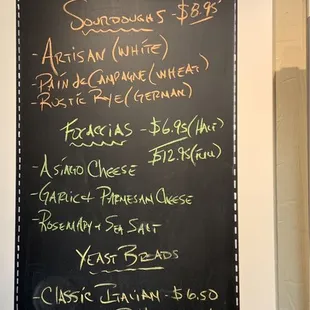 SOURDOUGHS - $8.95
- ARTISAN (WHITE)
- PAIN de CAMPAGNE (WHEAT)
- RUSTIC RYE (GERMAN)
FOCACCIAS - $6.95 (HALF)
$12.95 (FULL)
- ASIAGO CHEESE
- GARLIC & PARMESAN CHEESE
- ROSEMARY & SEA SALT
YEAST BREADS
- CLASSIC ITALIAN - $6.50